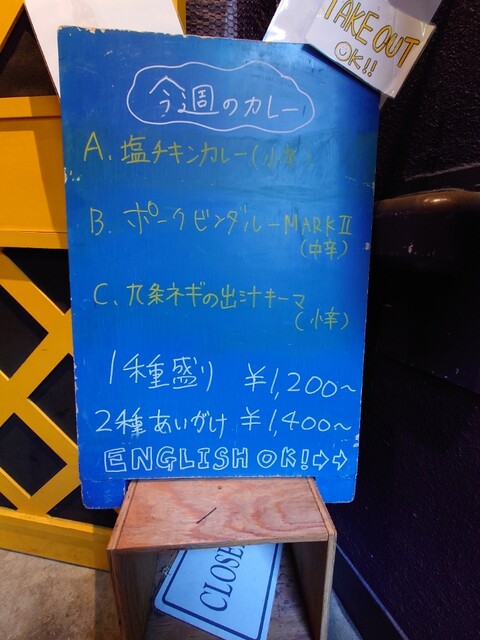 TAKE OUT
OK!!
今週のカレー
A. 塩チキンカレー(小辛)
B. ポークビンダルーMARKⅡ
(中辛)
C. 九条ネギの出汁キーマ
(小辛)
1種盛り ¥1,200~
2種あいがけ ¥1,400~
ENGLISH OK!⇨⇨
CLOSE